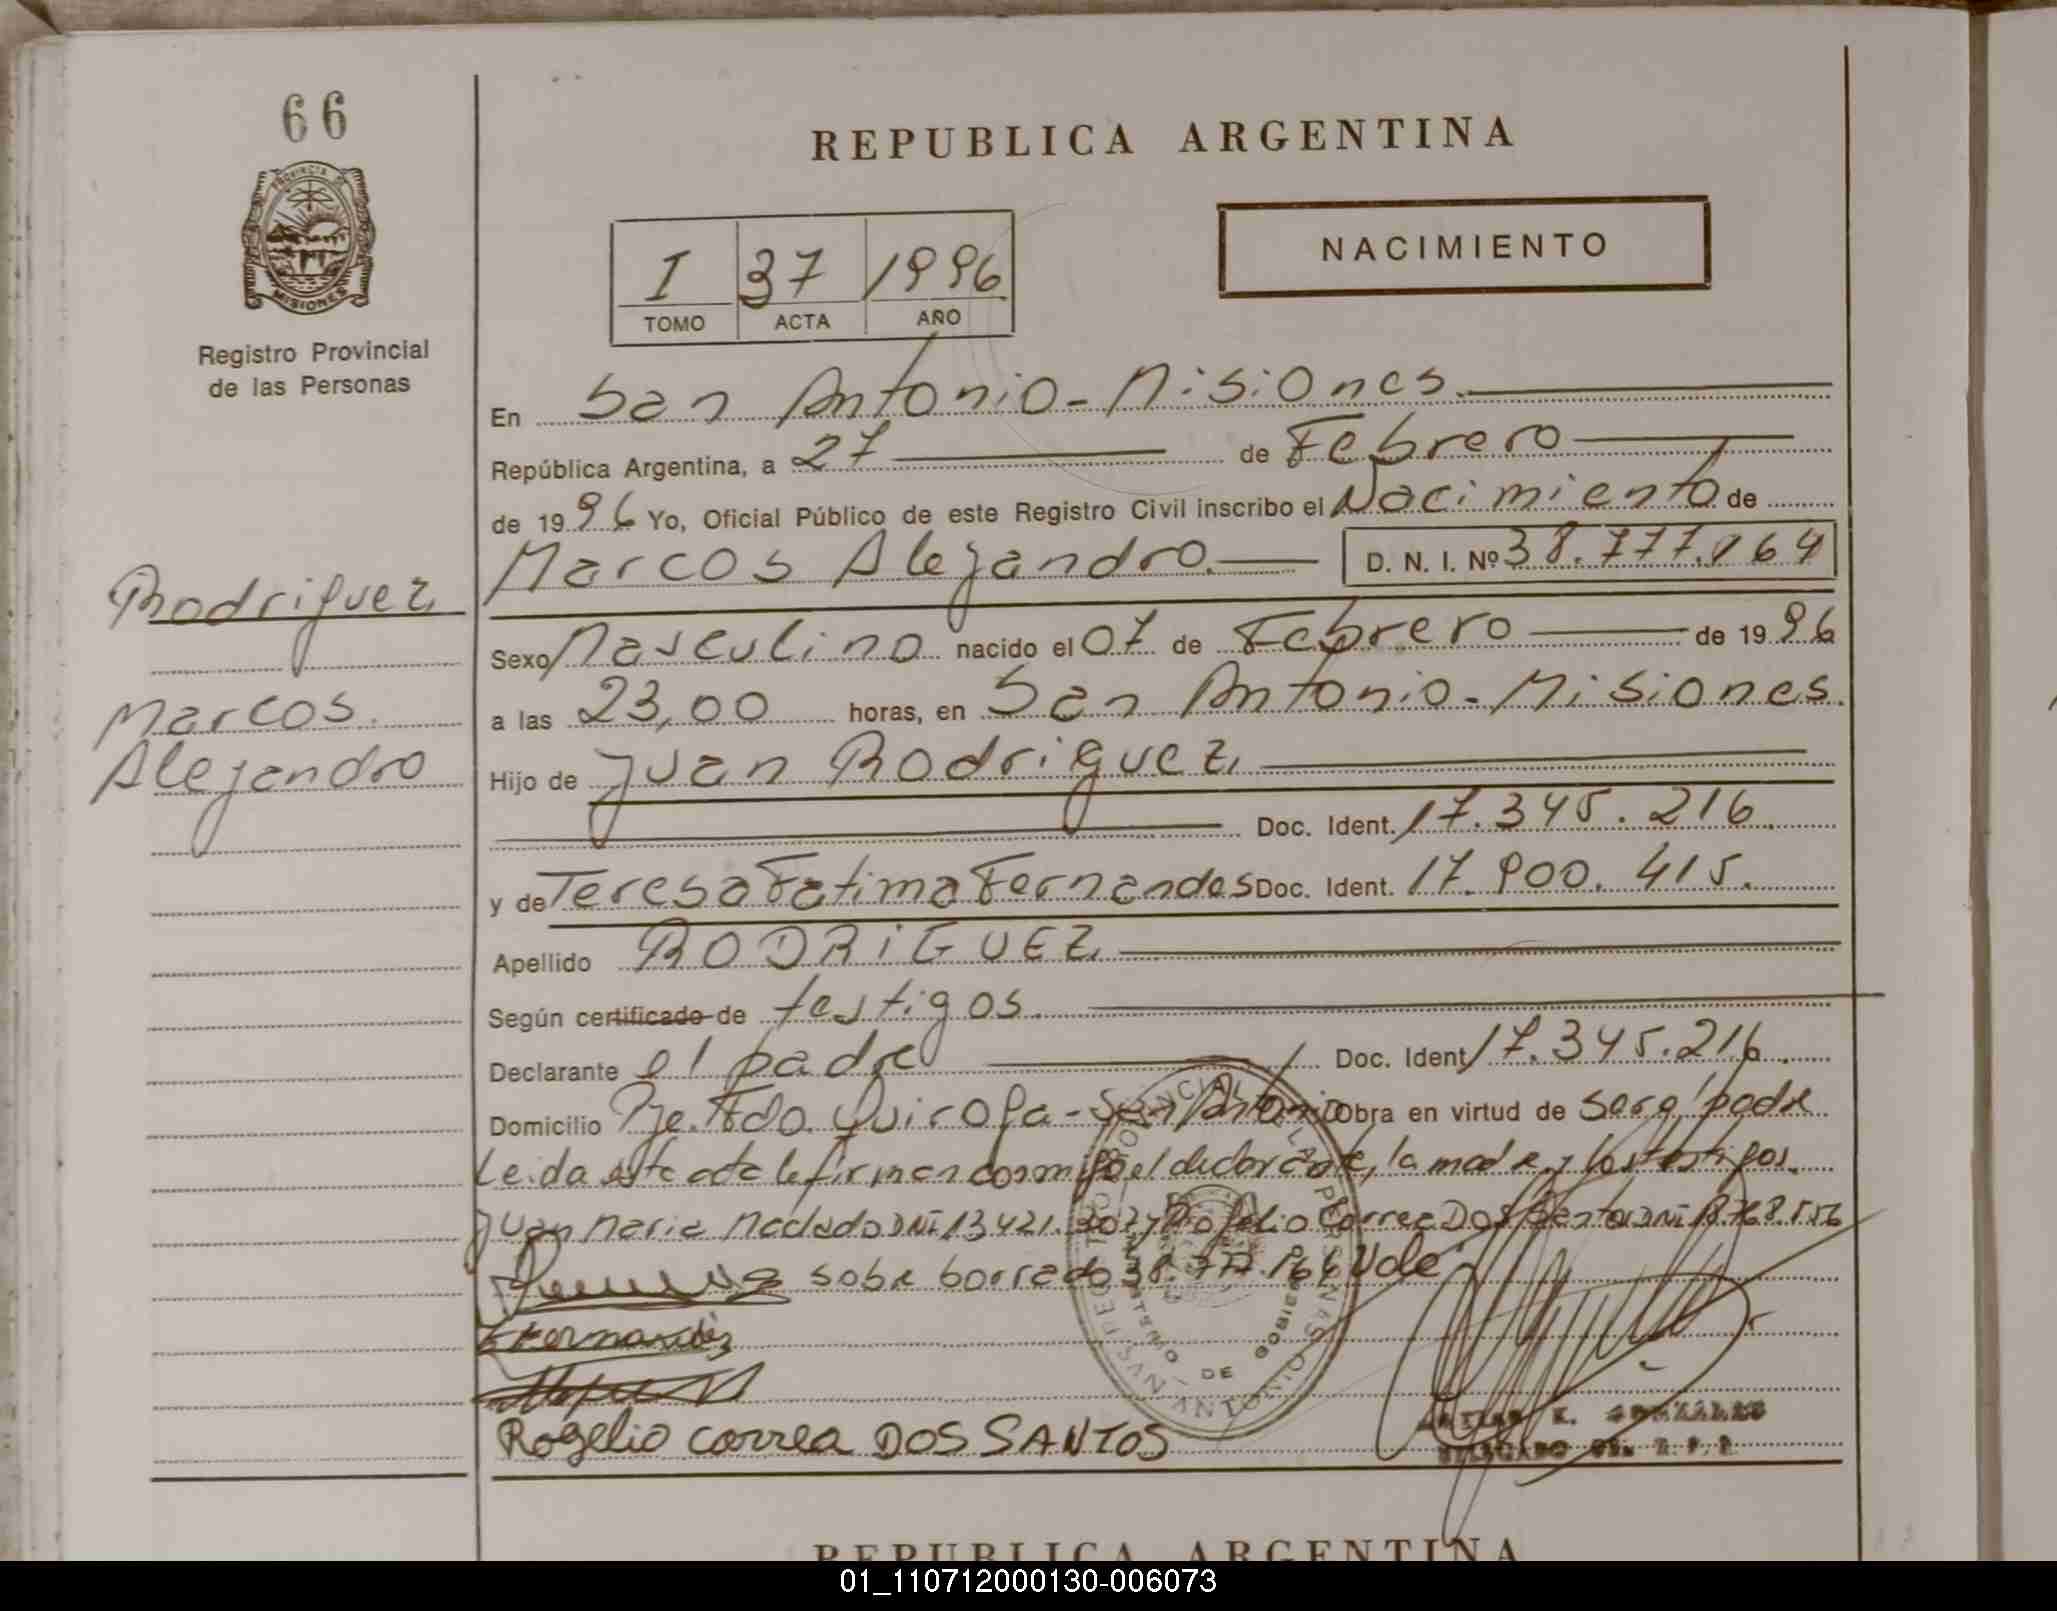 66
PROVINCIA DE
MISIONES
Registro Provincial
de las Personas
Rodriguez
Marcos
Alejandro
REPUBLICA ARGENTINA
NACIMIENTO
I 37 1996
TOMO ACTA AÑO
En San Antonio - Misiones.
República Argentina, a 27 de Febrero
de 1996 Yo, Oficial Público de este Registro Civil inscribo el Nacimiento de
Marcos Alejandro. D. N. I. Nº 38.777.964
Sexo Masculino nacido el 07 de Febrero de 1996
a las 23,00 horas, en San Antonio - Misiones.
Hijo de Juan Rodriguez.
Doc. Ident. 17.345.216.
y de Teresa Fatima Fernandes Doc. Ident. 17.900.415.
Apellido RODRIGUEZ.
Según certificado de testigos.
Declarante el padre Doc. Ident. 17.345.216.
Domicilio Pje. Fdo. Quiroga - San Antonio Obra en virtud de ser el padre
Leida esta acta la firman conmigo el declarante, la madre y los testigos.
Juan Maria Machado DNI 13.421. y Rogelio Correa Dos Santos DNI 18.768.556
sobre borrado 38.777.964 Vale
Fernandez
Rogelio correa DOS SANTOS
K. GONZALEZ
DELEGADO DEL R.P.P.
REPUBLICA ARGENTINA
01_110712000130-006073